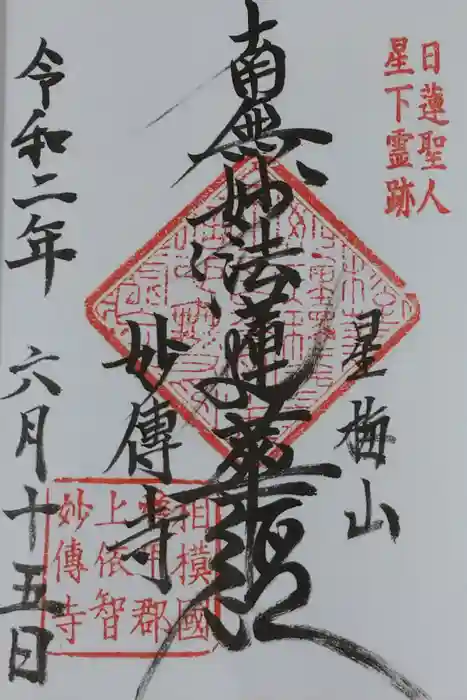 日蓮聖人
星下霊跡
星梅山
南無妙法蓮華經
妙傳寺
相模國
郡
上依智
妙傳寺
令和二年 六月十五日